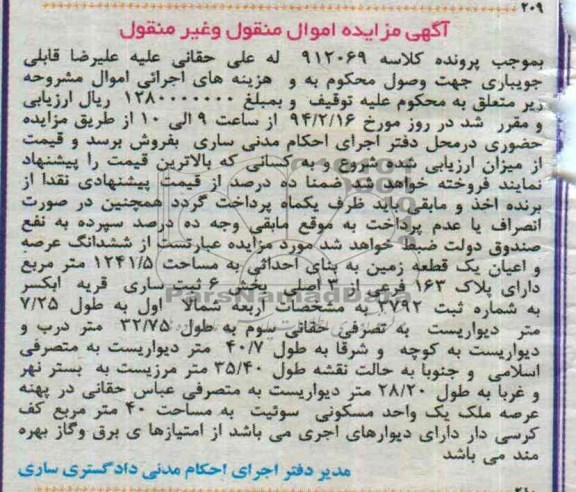 ۲۰۹
آگهی مزایده اموال منقول وغیر منقول
بموجب پرونده کلاسه ۹۱۲۰۶۹ له علی حقانی علیه علیرضا قابلی
جویباری جهت وصول محکوم به و هزینه های اجرائی اموال مشروحه
زیر متعلق به محکوم علیه توقیف و بمبلغ ۱۲۸۰۰۰۰۰۰۰ ریال ارزیابی
و مقرر شد در روز مورخ ۹۴/۲/۱۶ از ساعت ۹ الی ۱۰ از طریق مزایده
حضوری درمحل دفتر اجرای احکام مدنی ساری بفروش برسد و قیمت
از میزان ارزیابی شده شروع و به کسانی که بالاترین قیمت را پیشنهاد
نمایند فروخته خواهد شد ضمنا ده درصد از قیمت پیشنهادی نقدا از
برنده اخذ و مابقی باید ظرف یکماه پرداخت گردد همچنین در صورت
انصراف یا عدم پرداخت به موقع مابقی وجه ده درصد سپرده به نفع
صندوق دولت ضبط خواهد شد مورد مزایده عبارتست از ششدانگ عرصه
و اعیان یک قطعه زمین به بنای احداثی به مساحت ۱۲۴۱/۵ متر مربع
دارای پلاک ۱۶۳ فرعی از ۳ اصلی بخش ۶ ثبت ساری قریه ابکسر
به شماره ثبت ۳۷۹۲ به مشخصات اربعه شمالا اول به طول ۷/۲۵
متر دیواریست به تصرفی حقانی سوم به طول ۳۲/۷۵ متر درب و
دیواریست به کوچه و شرقا به طول ۴۰/۷ متر دیواریست به متصرفی
اسلامی و جنوبا به حالت نقشه طول ۳۵/۴۰ متر مرزیست به بستر نهر
و غربا به طول ۲۸/۲۰ متر دیواریست به متصرفی عباس حقانی در پهنه
عرصه ملک یک واحد مسکونی سوئیت به مساحت ۴۰ متر مربع کف
کرسی دار دارای دیوارهای اجری می باشد از امتیازها ی برق وگاز بهره
مند می باشد
مدیر دفتر اجرای احکام مدنی دادگستری ساری